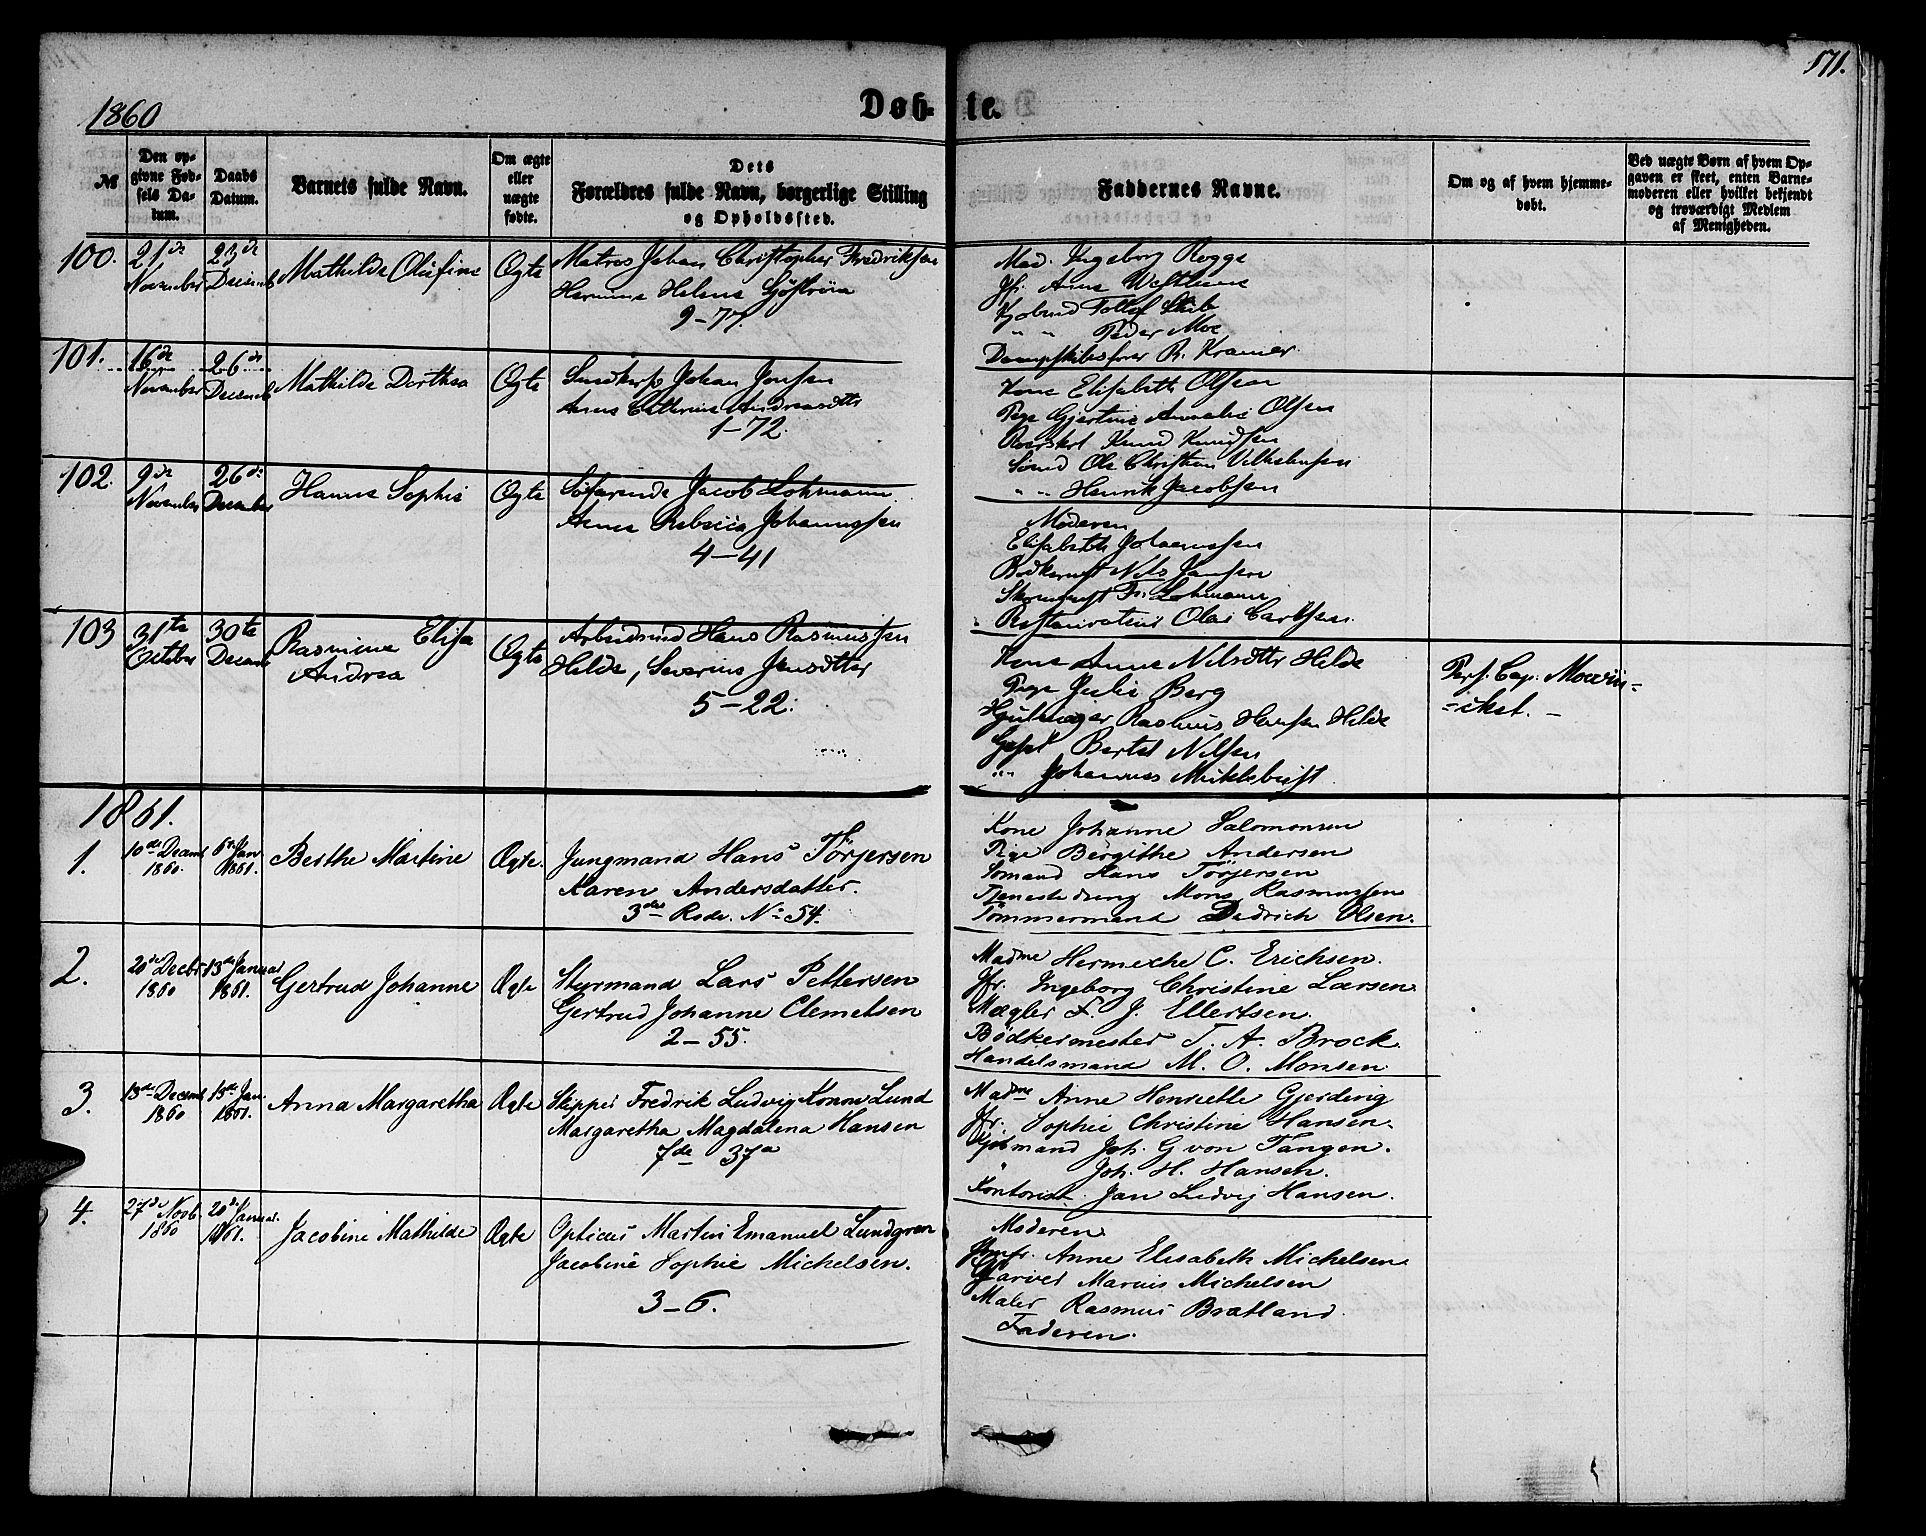 1860
Døb-
te.
171.
№
Den op-
givne Fød-
sels Da-
tum.
Daabs
Datum.
Barnets fulde Navn.
Om ægte
eller
uægte
fødte.
Dets
Forældres fulde Navn, borgerlige Stilling
og Opholdssted.
Faddernes Navne.
Om og af hvem hjemme-
døbt.
Ved uægte Børn af hvem Op-
gaven er skeet, enten Barne-
moderen eller hvilket bekjendt
og troværdigt Medlem
af Menigheden.
100.
21de
November
23de
Decemb
Mathilde Olufine
Ægte
Matros Johan Christopher Fredriksen
Helene
9-77.
Mad. Ingeborg Rogge
Jfr. Anne
Tollef
" " Peder Moe
Dampskibsfører R. Kramer.
101.
16de
November
26de
Decemb
Mathilde Dorthea
Ægte
Johan Jonsen
Anne Cathrine Andreasdtr
1-72.
Kone Elisabeth Olsen
Pige Gjertine Olsen
Knud Knudsen
Ole Christian
" " Henrik Jacobsen
102.
9de
November
26de
December
Hanne Sophie
Ægte
Søfarende Jacob Lohmann
Anne Johannessen
4-41
Moderen
Elisabeth Johannessen
Nils Jansen
Fr. Lohmann
Olai Carlsen.
103
31te
October
30te
Decemb
Rasmine Elisa
Andrea
Ægte
Arbeidsmd Hans Rasmussen
Hilde, Severine Jensdtter
5-22.
Kone Anne Nilsdtr Hilde
Pige Julie Berg
Hjulmager Rasmus Hansen Hilde
Bertel Nilsen
" " Johannes Miklebust
Pers. Cap. Mowin-
-ckel.
1861.
1.
10de Decemb
1860.
6te Jan
1861.
Berthe Martine
Ægte.
Jungmand Hans Törjersen
Karen Andersdatter.
3die Rode. No 54.
Kone Johanne Salomonsen
Pige Bergithe Andersen
Sømand Hans Törjersen
Tjenestedreng Mons Rasmussen
Tömmermand Dedrich Olsen.
2.
20de Decbr
1860
13de Januar
1861.
Gertrud Johanne
Ægte
Styrmand Lars Pettersen
Gertrud Johanne Clemetsen
2-55.
Madme Hermeche C. Erichsen.
Jfr. Ingeborg Christine Larsen
Mægler F. J. Ellertsen.
Bödkermester T. A. Brock.
Handelsmand M. O. Monsen
3.
13de Decemb
1860
15de Jan.
1861.
Anna Margaretha
Ægte
Skipper Fredrik Ludvig Konow Lund
Margaretha Magdalena Hansen
7de 37a
Madme Anne Henriette Gjerding
Jfr. Sophie Christine Hansen.
Kjøbmand Joh. G von Tangen.
Joh. H. Hansen.
Kontorist Jan Ludvig Hansen.
4.
27de Novb.
1860
20de Januar.
1861.
Jacobine Mathilde
Ægte
Opticus Martin Emanuel Lundgren
Jacobine Sophie Michelsen.
3-6.
Moderen
Jomfr. Anne Elisabeth Michelsen
Garver Marius Michelsen
Maler Rasmus Bratland
Faderen.